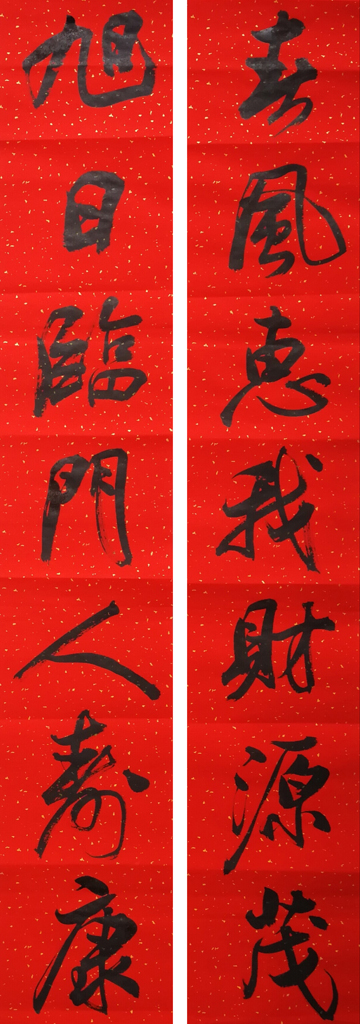 春風惠我財源茂
旭日臨門人壽康